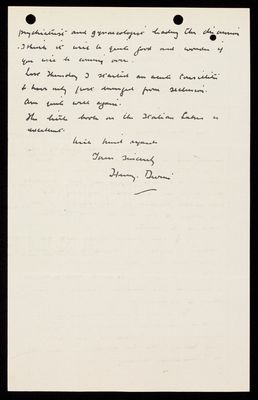 psychiatrist and gynaecologist leading the discussion
I think it will be quite good and wonder if
you will be coming over.
Last Thursday I started an acute
& have only just emerged from seclusion.
Am quite well again.
The little book on the Italian Lakes is
excellent.
With kind regards
Yours sincerely
Henry